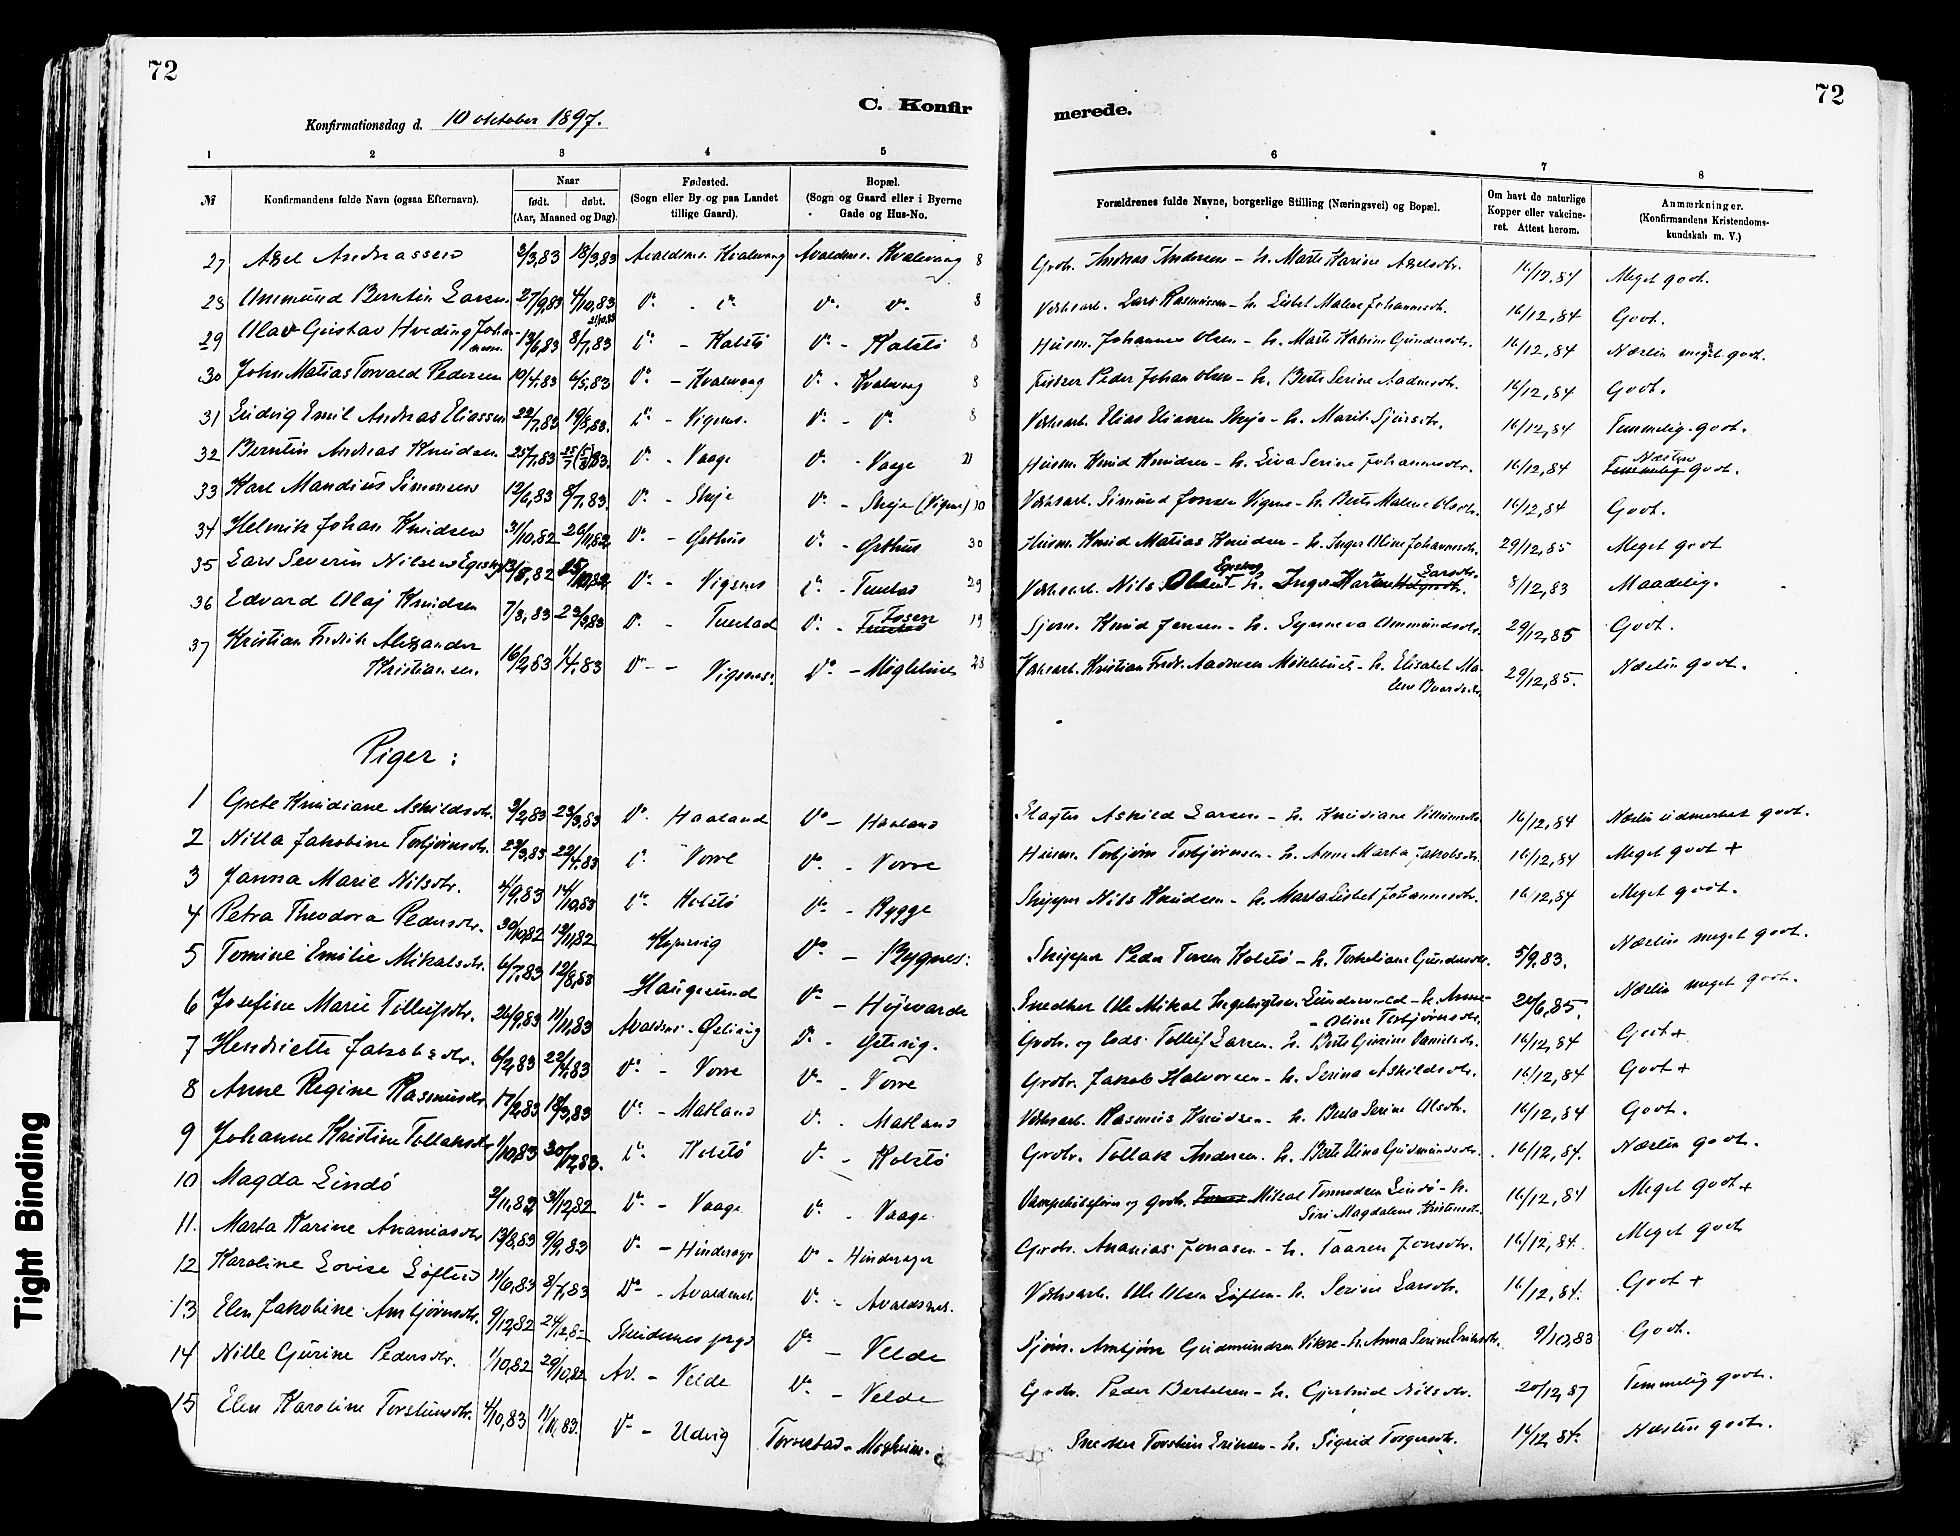 72
72
C. Konfir
merede.
Konfirmationsdag d. 10 oktober 1897.
1 2 3 4 5 6 7 8
№
Konfirmandens fulde Navn (ogsaa Efternavn).
Naar
født. døbt.
(Aar, Maaned og Dag).
Fødested.
(Sogn eller By og paa Landet
tillige Gaard).
Bopæl.
(Sogn og Gaard eller i Byerne
Gade og Hus-No.
Forældrenes fulde Navne, borgerlige Stilling (Næringsvei) og Bopæl.
Om havt de naturlige
Kopper eller vakcine-
ret. Attest herom.
Anmærkninger.
(Konfirmandens Kristendoms-
kundskab m. V.)
27 Axel Andreassen 2/3,83 18/3,83 Avaldsnes. Kvalevaag Avaldsnes. Kvalevaag 8 Grdbr. Andreas Andersen - h. Marte Karine Axelsdtr. 16/12,84 Meget godt.
28 Ommund Berntin Larsen 27/9,83 4/10,83 Do. Do. Do. Do. 8 Lars Rasmussen - h. Lisbet Malene Johannesdtr. 16/12,84 Godt.
29 Olav Gustav Hveding Johan- 13/6,83 8/7,83 Do - Kolstø Do - Kolstø 8 Husm. Johannes Olsen - h. Marte Katrine Gundersdtr. 16/12,84 Næsten meget godt.
30 John Matias Torvald Pedersen 10/4,83 6/5,83 Do - Kvalevaag Do - Kvalevaag 8 Fisker Peder Johan Olsen - h. Berte Serine 16/12,84 Godt.
31 Ludvig Emil Andreas Eliassen 22/7,83 19/8,83. Do - Vigsnes. Do - Do 8 Elias Eliassen - h. Marit Sjursdtr. 16/12,84 Temmelig godt.
32 Berntin Andreas Knudsen 25/7,83 Do - Vaage Do - Vaage 21 Husm. Knud Knudsen - h. Liva Serine Johannesdtr. 16/12,84 Næsten
Temmelig godt.
33 Karl Mandius Simonsen 12/6,83 8/7,83. Do - Skeje Do - Skeje (Vigsnes) 30 Simund Jonsen Vigsnes - h. Berte Malene Olsdtr. 16/12,84 Godt.
34 Helmik Johan Knudsen 31/10,82 26/11,82 Do - Østhus Do - Østhus 30 Husm. Knud Matias Knudsen - h. Inger Oline Johannesdtr. 29/12,85 Meget godt
35 Lars Severin Nilsen Do - Vigsnes Do - Tuestad 29 Nils Olsen - h. Inger Larsdtr. 8/12,83 Maadelig.
36 Edvard Olaj Knudsen 7/3,83 23/3,83 Do - Tuestad Do - Fosen 19 Knud Jensen - h. Synneva Ommundsdtr. 29/12,85 Godt.
37 Kristian Fredrik Alexander
Kristiansen. 16/2,83 1/4,83 Do - Vigsnes. Do - 23 Kristian Fredr. Aadnesen - h. Elisabet Ma-
29/12,85. Næsten godt.
Piger:
1 Grete Knudiane Askildsdtr. 3/2,83 23/3,83 Do. Haaland Do - Haaland Slagter Askild Larsen - h. Knudiane 16/12,84 Næsten udmerket godt.
2 Nilla Jakobine Torbjørnsdtr. 29/3,83 22/4,83 Do. Vorre Do. - Vorre Husm. Torbjørn Torbjørnsen - h. Anne Marta Jakobsdtr. 16/12,84 Meget godt +
3 Janna Marie Nilsdtr. 4/9,83 14/10,83 Do. Kolstø Do - Rygge Skipper Nils Knudsen - h. Marta Lisbet Johannesdtr. 16/12,84 Meget godt.
4 Petra Theodora Pedersdtr. 30/10,82 12/11,82 Kopervig Do - Bygnes. Skipper Peder Torsen Kolstø - h. Torkeliane Gundersdtr. 5/9,83. Næsten meget godt.
5 Tomine Emilie Mikalsdtr. 6/7,83 12/8,83 Haugesund Do - Højevarde Snedker Ole Mikal - h. Anne
- Oline Torbjørnsdtr. 20/6,85. Næsten meget godt.
6 Josefine Marie Tollefsdtr. 26/9,83 11/11,83 Avaldsnes - Østevig Do - Østevig. Grdbr. og Tollef Larsen - h. Berte Gurine Danielsdtr. 16/12,84 Godt +
7 Henriette Jakobsdtr. 6/2,83 22/4,83 Do - Vorre Do - Vorre Grdbr. Jakob Halvorsen - h. Serina Askildsdtr. 16/12,84 Godt +
8 Anne Regine Rasmusdtr. 17/2,83 18/3,83 Do - Matland Do - Matland Rasmus Knudsen - h. Berta Serine Olsdtr. 16/12,84 Godt.
9 Johanne Kristine Tollaksdtr. 1/10,83 30/12,83. Do Kolstø Do - Kolstø Grdbr. Tollak Andersen - h. Berte Elina Gudmundsdtr. 16/12,84. Næsten godt.
10 Magda Lindø 2/11,82 31/12,82 Do - Vaage Do - Vaage og Grdbr. Mikal Tønnesen Lindø - h.
Siri Magdalene Kristensdtr. 16/12,84 Meget godt +
11. Marta Karine Ananiasdtr. 13/8,83 9/9,83 Do - Hinderager Do - Hinderager Grdbr. Ananias Jonasen - h. Taaren Jonsdtr. 16/12,84. Meget godt
12 Karoline Lovise Løften 11/6,83 8/7,83 Do - Avaldsnes. Do - Avaldsnes. Ole Olsen Løften - h. Serine Larsdtr. 16/12,84. Godt +
13 Elen Jakobine Arnbjørnsdtr. 9/12,82 24/12,82 Skudesnes Do - Velde Arnbjørn Gudmundsen - h. Anna Serine Eriksdtr. 9/10,83 Godt.
14 Nille Gurine Pedersdtr. 1/10,82 29/10,82 Av. - Velde Do - Velde Grdbr. Peder Bertelsen - h. Gjertrud Nilsdtr. 20/12,87 Temmelig godt.
15 Elen Karoline Torstensdtr. 4/10,83 11/11,83. Do - Udvig Torvestad - Snedker Torsten Eriksen - h. Sigrid Torgersdtr. 16/12,84. Næsten godt.
Tight Binding